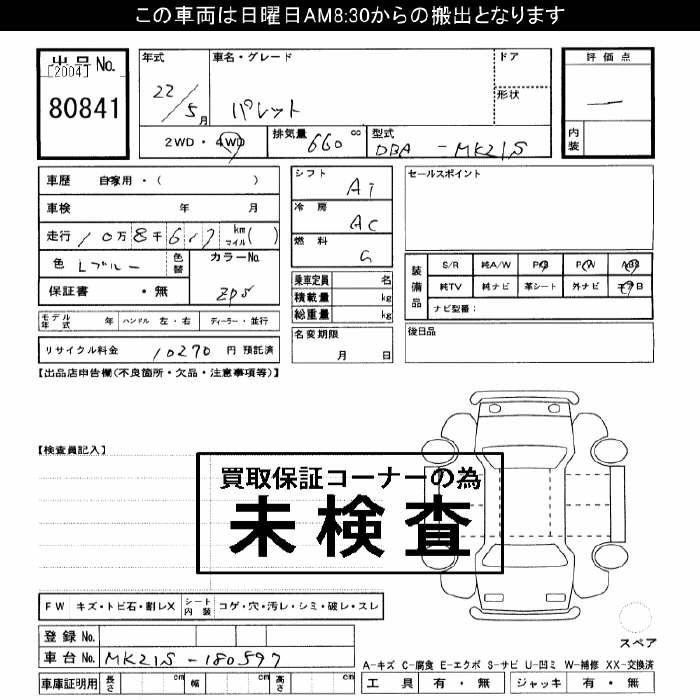 この車両は日曜日AM8:30からの搬出となります
出品No.
[2004]
80841
年式 車名・グレード ドア
22/5月 パレット
形状
2WD・4WD 排気量 660 cc 型式 DBA - MK21S
評価点
―
内装
車歴 自家用・( )
車検 年 月
走行 10万8千617 km マイル( )
色 Lブルー 色替 カラーNo.
保証書 ・無 ZPS
モデル年式 年 ハンドル 左・右 ディーラー・並行
リサイクル料金 10270 円 預託済
シフト AT
冷房 AC
燃料 G
乗車定員 名
積載量 kg
総重量 kg
名変期限
月 日
セールスポイント
装備品 S/R 純A/W P/S P/W ABS
純TV 純ナビ 革シート 外ナビ エアB
ナビ型番:
後日品
【出品店申告欄(不良箇所・欠品・注意事項等)】
【検査員記入】
買取保証コーナーの為
未検査
FW キズ・トビ石・割レX シート内装 コゲ・穴・汚レ・シミ・破レ・スレ
登録No.
車台No. MK21S-180597
車庫証明用 長さ cm 幅 cm 高さ cm
スペア
A-キズ C-腐食 E-エクボ S-サビ U-凹ミ W-補修 XX-交換済
工具 有・無 ジャッキ 有・無